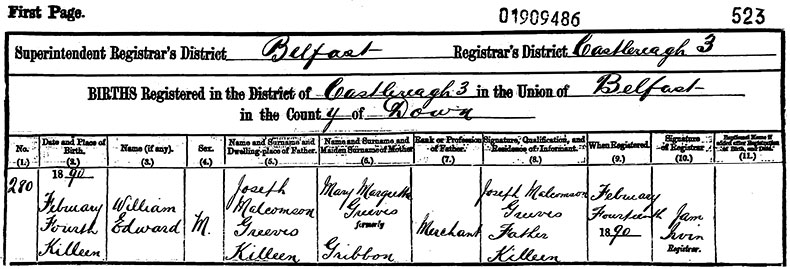 First Page.
01909486
523
Superintendent Registrar's District Belfast Registrar's District Castlereagh 3
BIRTHS Registered in the District of Castlereagh 3 in the Union of Belfast
in the County of Down
No. Date and Place of Birth. Name (if any). Sex. Name and Surname and Dwelling-place of Father. Name and Surname and Maiden Surname of Mother. Rank or Profession of Father. Signature, Qualification, and Residence of Informant. When Registered. Signature of Registrar. Baptismal Name if added after Registration of Birth, and Date.
(1.) (2.) (3.) (4.) (5.) (6.) (7.) (8.) (9.) (10.) (11.)
280
1890
February
Fourth
Killeen
William
Edward
M.
Joseph
Malcomson
Greeves
Killeen
Mary Margretta
Greeves
formerly
Gribbon
Merchant
Joseph Malcomson
Greeves
Father
Killeen
February
Fourteenth
1890
Jam
Irvin
Registrar.